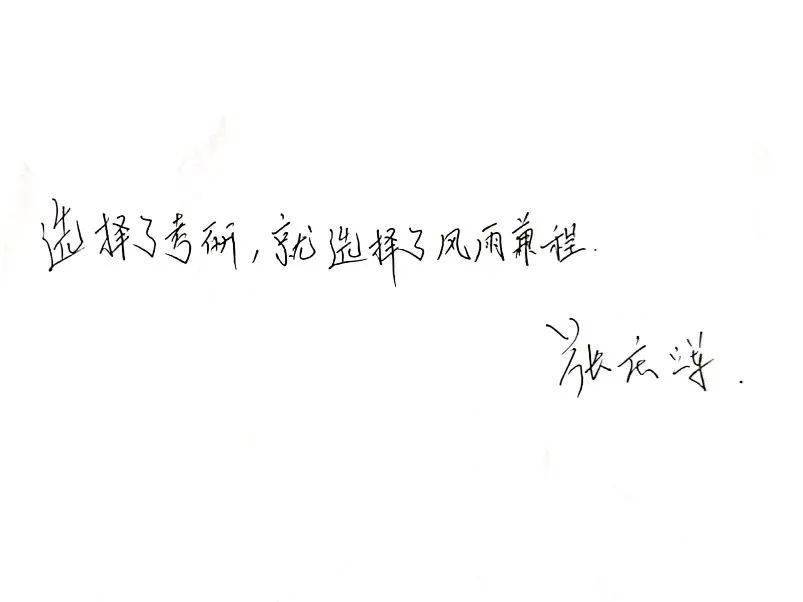 选择了考研,就选择了风雨兼程.
张